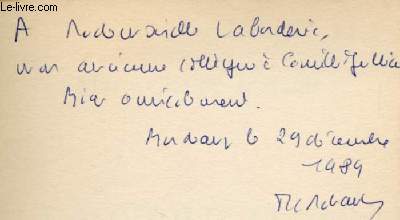 Le-livre.com
A Mademoiselle Laborderie,
mon ancienne collègue à Camille Jullian
Bien amicalement.
Bordeaux le 29 décembre
1989